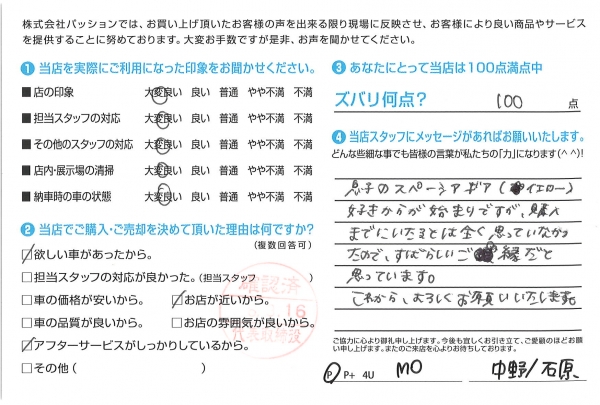 株式会社パッションでは、お買い上げ頂いたお客様の声を出来る限り現場に反映させ、お客様により良い商品やサービス
を提供することに努めております。大変お手数ですが是非、お声を聞かせてください。
① 当店を実際にご利用になった印象をお聞かせください。
■店の印象 大変良い 良い 普通 やや不満 不満
■担当スタッフの対応 大変良い 良い 普通 やや不満 不満
■その他のスタッフの対応 大変良い 良い 普通 やや不満 不満
■店内・展示場の清掃 大変良い 良い 普通 やや不満 不満
■納車時の車の状態 大変良い 良い 普通 やや不満 不満
② 当店でご購入・ご売却を決めて頂いた理由は何ですか?
(複数回答可)
☑欲しい車があったから。
□担当スタッフの対応が良かった。(担当スタッフ )
□車の価格が安いから。 ☑お店が近いから。
□車の品質が良いから。 □お店の雰囲気が良いから。
☑アフターサービスがしっかりしているから。
□その他( )
確認済
16
代表取締役
③ あなたにとって当店は100点満点中
ズバリ何点? 100 点
④ 当店スタッフにメッセージがあればお願いいたします。
どんな些細な事でも皆様の言葉が私たちの「力」になります(^ ^)!
息子のスペーシアギア(イエロー)
好きからが始まりですが、購入
までにいたるとは全く思っていなかっ
たので、すばらしいご縁だと
思っています。
これから、よろしくお願いいたします。
ご協力に心より御礼申し上げます。今後も宜しくお引き立て、ご愛顧のほどお願
い申し上げます。またのご来店を心よりお待ちしております。
P P+ 4U MO 中野/石原